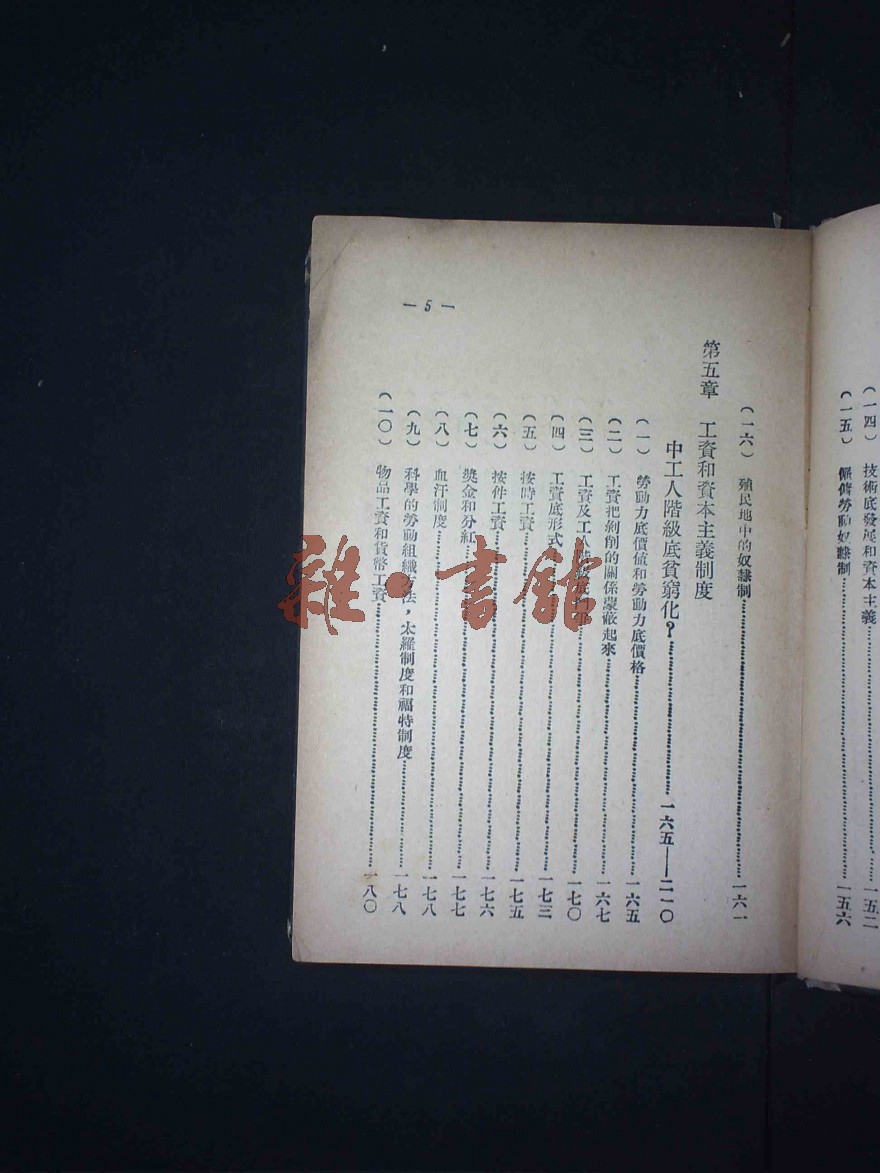 (一四) 技術底發展和資本主義……一五二
(一五) 僱傭勞動奴隸制……一五六
(一六) 殖民地中的奴隸制……一六一
第五章 工資和資本主義制度
中工人階級底貧窮化？……一六五——二一〇
(一) 勞動力底價值和勞動力底價格……一六五
(二) 工資把剝削的關係蒙蔽起來……一六七
(三) 工資及工人階級底……一七〇
(四) 工資底形式……一七三
(五) 按時工資……一七五
(六) 按件工資……一七六
(七) 獎金和分紅……一七七
(八) 血汗制度……一七八
(九) 科學的勞動組織方法，太羅制度和福特制度……一七八
(一〇) 物品工資和貨幣工資……一八〇
— 5 —
雜·書館